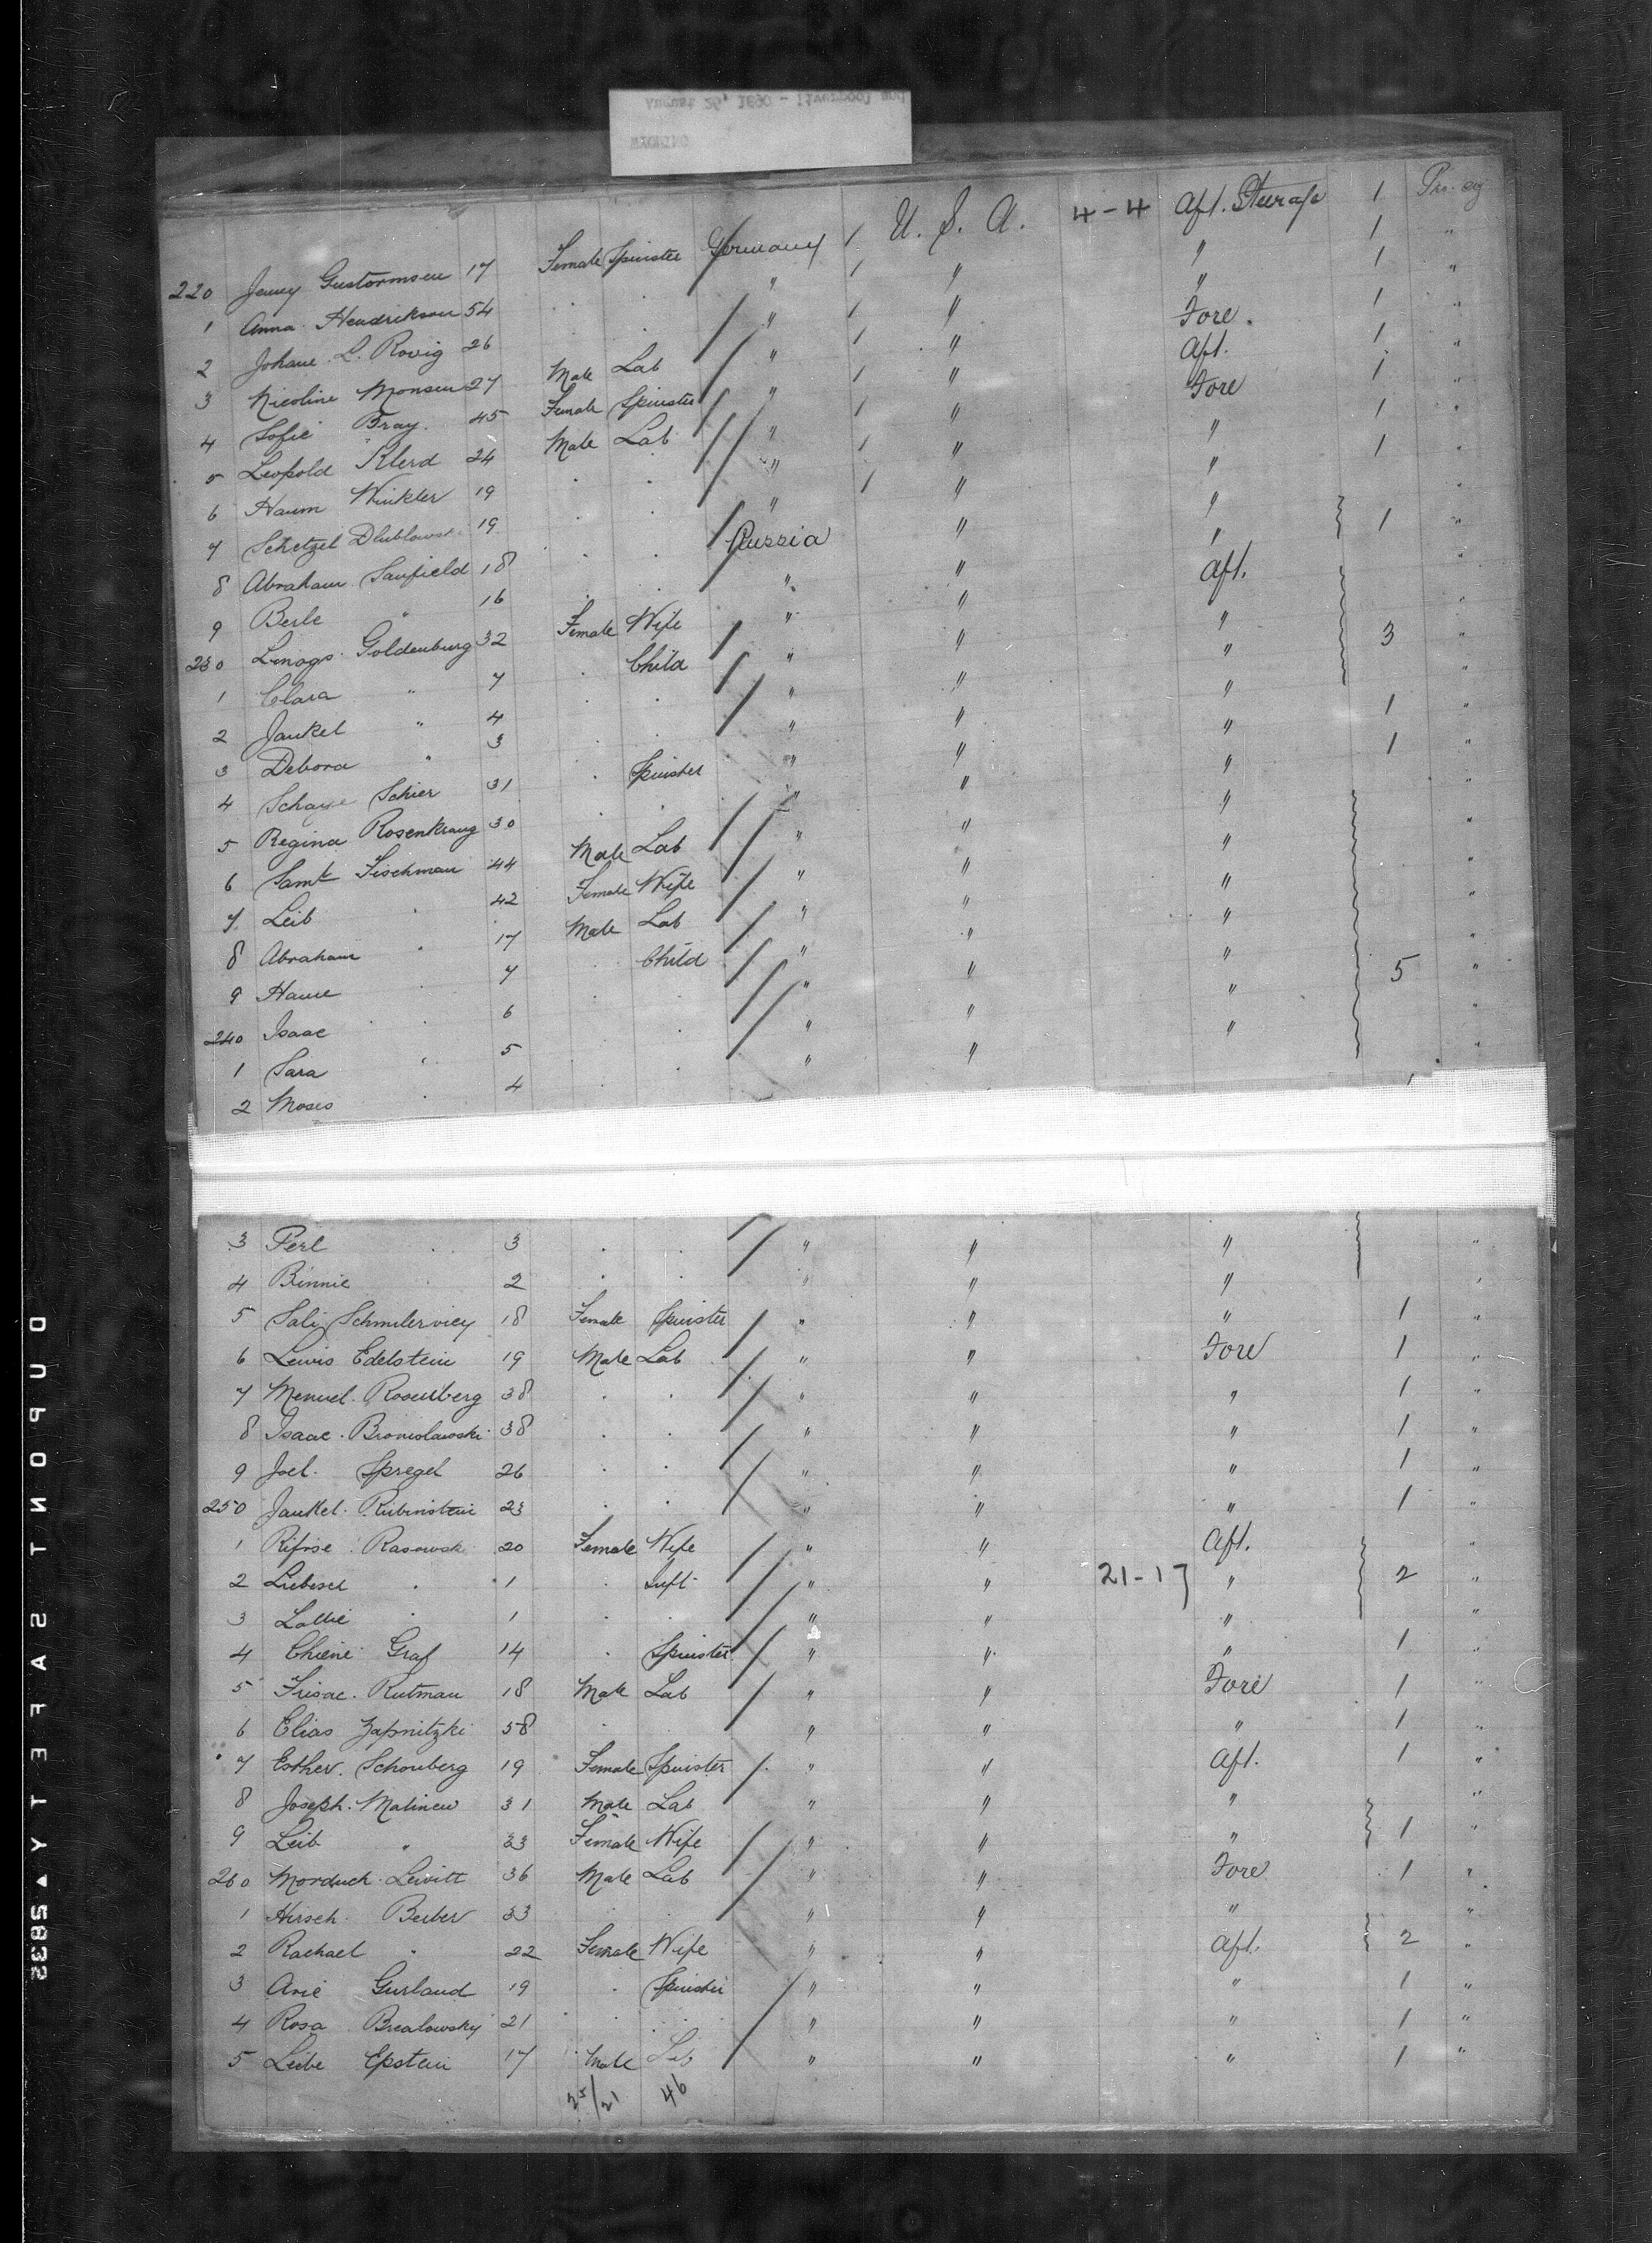 August 26, 1890 - Liverpool and
WYOMING
220 Jenny Gustormsen 17 Female Spinster Germany / U. S. A. 4-4 Aft. Steerage 1
1 Anna Hendrikson 54 . . " / " " 1 "
2 Johane L. Rovig 26 . . " / " " 1 "
3 Nicoline Monsen 27 " / " Fore. 1 "
4 Sofie Bray. 45 Male Lab " / " Aft. 1 "
5 Leopold Klerd 24 Female Spinster " / " Fore 1 "
6 Haum Winkler 19 Male Lab " / " " 1 "
7 Schetzel 19 . . " / " " 1 "
8 Abraham Sanfield 18 . . Russia " " "
9 Berle " 16 . . " " " 1 "
230 Goldenburg 32 Female Wife " " Aft. "
1 Clara " 7 . Child " " " 3 "
2 Jankel " 4 . . " " " "
3 Debora " 3 . . " " " "
4 Schaye Schier 31 . Spinster " " " 1 "
5 Regina Rosenkranz 30 . . " " " 1 "
6 Saml. Fischman 44 Male Lab " " " "
7 Leib " 42 Female Wife " " " "
8 Abraham " 17 Male Lab " " " "
9 Haune " 7 . Child " " " "
240 Isaac " 6 . . " " " 5 "
1 Sara " 5 . . " " " "
2 Moses " 4 . . " " " "
3 Perl . 3 . . " " " "
4 Binnie . 2 . . " " " "
5 Sali Schmilervicy 18 Female Spinster " " " 1 "
6 Lewis Edelstein 19 Male Lab " " Fore 1 "
7 Menuel. Rosenberg 38 . . " " " 1 "
8 Isaac. Bronislawski 38 . . " " " 1 "
9 Joel. Spregel 26 . . " " " 1 "
250 Jankel. Rubinstein 23 . . " " " 1 "
1 Rifose Rasowski 20 Female Wife " " Aft. "
2 Liebesel . 1 . Inft. " " 21-17 " 2 "
3 Lottie . 1 . . " " " "
4 Chiene Graf 14 . Spinster " " " 1 "
5 Frisac. Rutman 18 Male Lab " " Fore 1 "
6 Elias Zapnitzki 58 . . " " " 1 "
7 Esther. Schonberg 19 Female Spinster " " Aft. 1 "
8 Joseph. Malinew 31 Male Lab " " " "
9 Leib " 33 Female Wife " " " 1 "
260 Morduch. Levitt 36 Male Lab " " Fore 1 "
1 Hirsch. Berber 33 . . " " " "
2 Rachael " 22 Female Wife " " Aft. 2 "
3 Arie Gurland 19 . Spinster " " " 1 "
4 Rosa Brealowsky 21 . . " " " 1 "
5 Leibe Epstein 17 Male Lab " " " 1 "
25/21 46
DUPONT SAFETY ▲ 5832